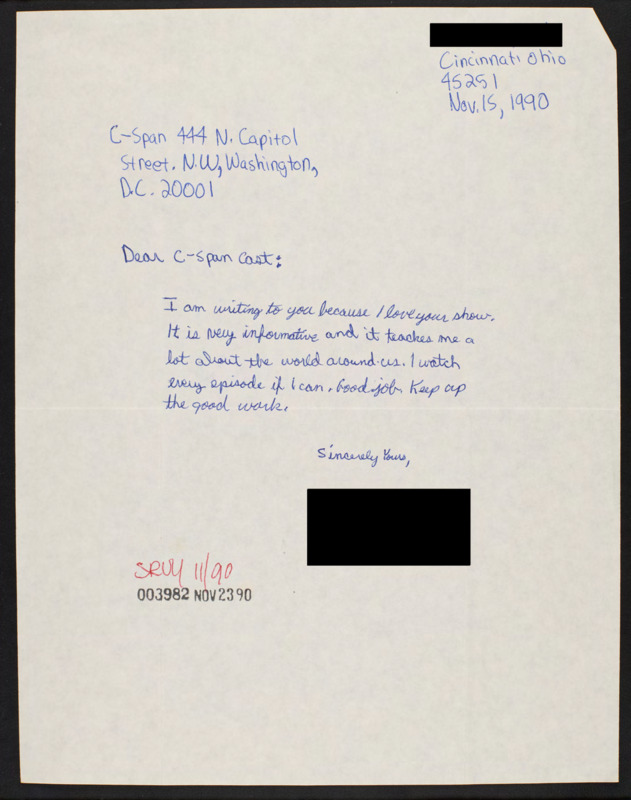 Cincinnati Ohio
45251
Nov. 15, 1990
C-Span 444 N. Capitol
Street. N.W, Washington,
D.C. 20001
Dear C-Span Cast:
I am writing to you because I love your show.
It is very informative and it teaches me a
lot about the world around us. I watch
every episode if I can. Good job. Keep up
the good work.
Sincerely Yours,
SRVY 11/90
003982 NOV 23 90